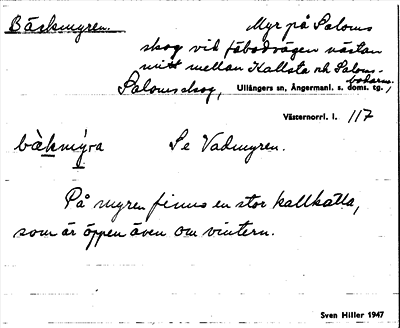 Bäckmyren.
Myr på Saloms
skog vid fäbodvägen nästan
mitt mellan Kallsta och Saloms-
bodarna.
Salomsskog, Ullångers sn, Ångermanl. s. doms. tg.,
Västernorrl. l. 117
bäkmýra Se Vadmyren.
På myren finns en stor kallkälla,
som är öppen även om vintern.
Sven Hiller 1947